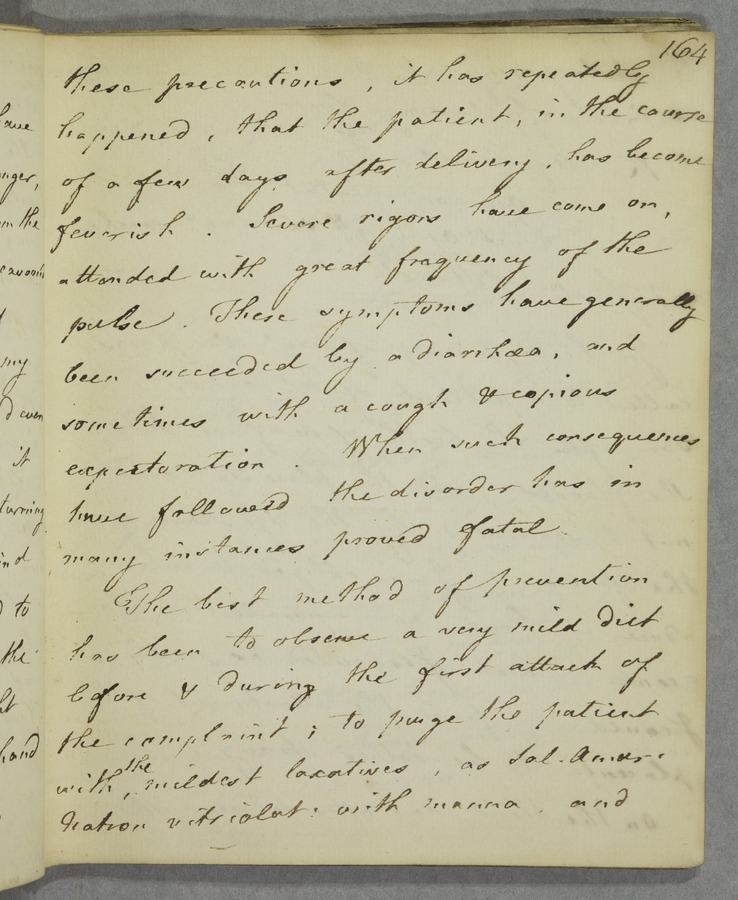 164
these precautions, it has repeatedly
happened, that the patient, in the course
of a few days after delivery, has become
feverish. Severe rigors have come on,
attended with great frequency of the
pulse. These symptoms have generally
been succeeded by a diarrhœa, and
sometimes with a cough & copious
expectoration. When such consequences
have followed the disorder has in
many instances proved fatal.
The best method of prevention
has been to observe a very mild diet
before & during the first attack of
the complaint; to purge the patient
with the mildest laxatives, as Sal. Amar:
Natron vitriolat: with manna, and
have
nger,
my
d even
it
turning
ind
d to
the
ht
hand